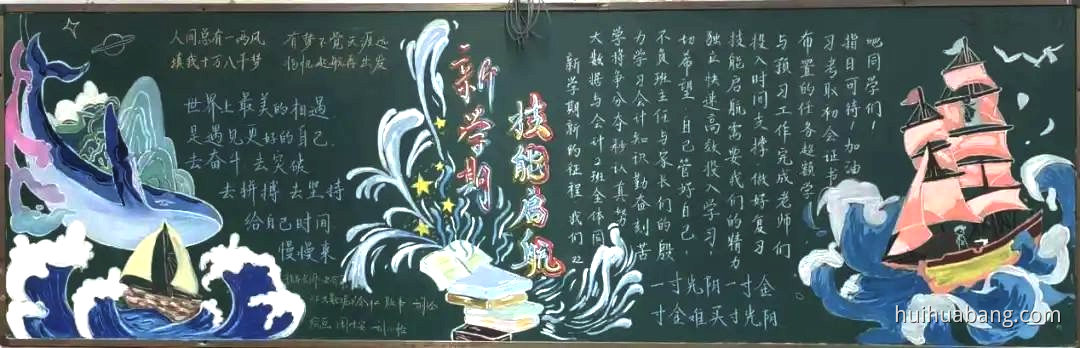 人间总有一两风 有梦不觉天涯远
填我十万八千梦 扬帆起航再出发
世界上最美的相遇
是遇见更好的自己.
去奋斗 去突破
去拼搏 去坚持
给自己时间
慢慢来
新学期
技能启航
新学期新的征程 我们22
大数据与会计2班全体同
学将争分夺秒认真努
为学习会计知识勤奋刻苦
不负班主任与家长们的殷
切希望，自己管好自己，
独立快速高效投入学习，
技能启航需要我们的精力
投入时间支撑，做好复习
与预习工作，完成老师们
布置的任务，超额学
习，考取初会证书
指日可待！加油
吧同学们！
一寸光阴一寸金
寸金难买寸光阴
huihuabang.com